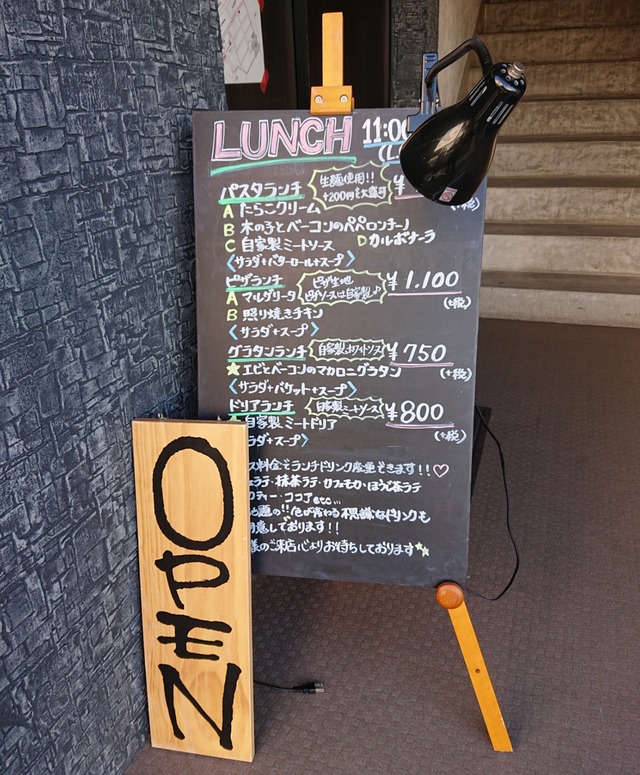 LUNCH 11:00
パスタランチ 生麺使用!! ¥
+200円で大盛可
A たらこクリーム (+税)
B 木の子とベーコンのペペロンチーノ
C 自家製ミートソース D カルボナーラ
<サラダ+バターロール+スープ>
ピザランチ ピザ生地 ¥1.100
A マルゲリータ ピザソースは自家製♪ (+税)
B 照り焼きチキン
<サラダ+スープ>
グラタンランチ 自家製ホワイトソース ¥750
★ エビとベーコンのマカロニグラタン (+税)
<サラダ+バケット+スープ>
ドリアランチ 自家製ミートソース ¥800
自家製ミートドリア (+税)
ラダ+スープ>
ス料金でランチドリンク変更できます!!♡
ラテ・抹茶ラテ・ ・ほうじ茶ラテ
ティー・ココア etc...
題の!!色が変わる不思議なドリンクも
意しております!!
様のご来店心よりお待ちしております★★
OPEN